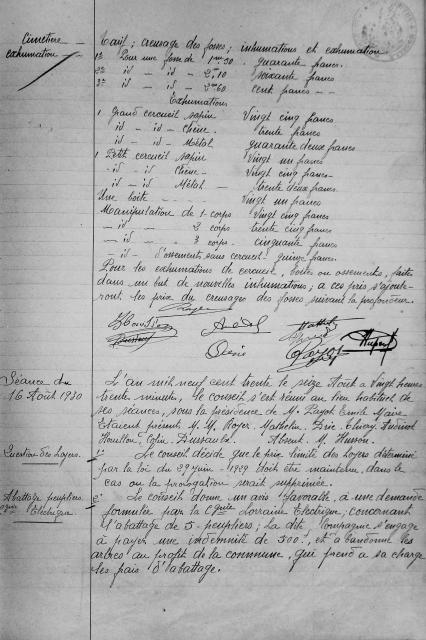 Cimetière
exhumation
Tarif; creusage des fosses; inhumations et exhumation
1º Pour une fosse de 1m30 . quarante francs.
2º id - id - 2m10 soixante francs
3º id - id - 2m60 cent francs
Exhumations
1 Grand cercueil sapin Vingt cinq francs
id - id - Chêne. trente francs
id - id - Métal quarante deux francs
1 Petit cercueil sapin Vingt un francs
id - id Chêne - Vingt cinq francs.
id - id Métal. - trente deux francs
Une boîte Vingt un francs
Manipulation de 1 corps Vingt cinq francs
- id - 2 corps trente cinq francs
- id - 3 corps. cinquante francs
- id - d'ossements sans cercueil quinze francs.
Pour les exhumations de cercueil, boîtes ou ossements, faite
dans un but de nouvelles inhumations, a ces prix s'ajoute-
ront, les prix du creusages des fosses, suivant la profondeur.
Drié
Hupert
Séance du
16 Août 1930
L'an mil neuf cent trente le seize Août a Vingt heures
trente minutes, le conseil s'est réuni au lieu habituel de
ses séances, sous la présidence de M. Payot Emile Maire
Etaient présents M. M. Royer. Mathelin. Drié. Thiery.
Houillon. Colin. Absent. M. Husson.
Question des Loyers.
1º Le conseil décide que le prix limite des Loyers déterminé
par la loi du 29 juin - 1929 doit être maintenu, dans le
cas ou la prologation serait supprimée.
Abattage peupliers.
Cgnie Electrique
2º Le conseil donne un avis favorable, a une demande
formulée par la Cgnie Lorraine Electrique; concernant
l'abattage de 5 peupliers; La dite Compagnie s'engage
à payer une indemnité de 500f, et a bandonne les
arbres au profit de la commune, qui prend a sa charge
les frais d'abattage.